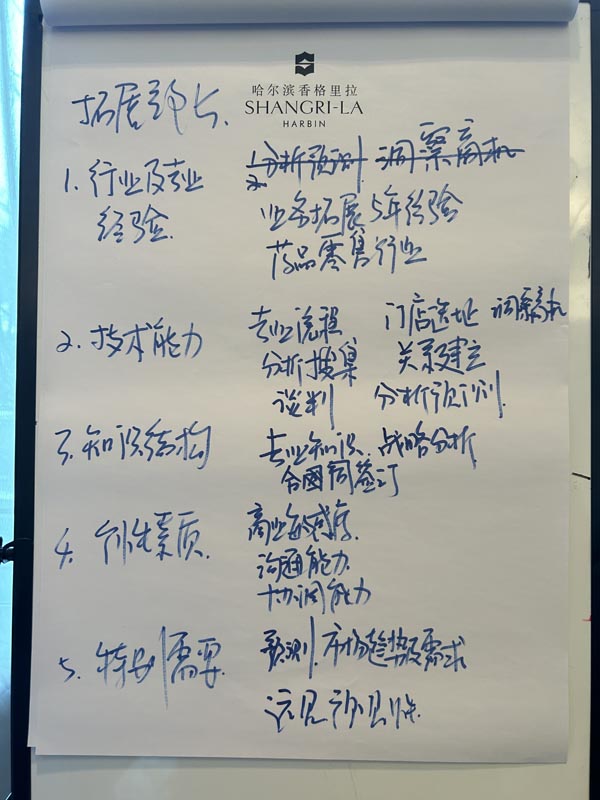 哈尔滨香格里拉
SHANGRI-LA
HARBIN
拓展部长.
1. 行业及专业 分析预测 洞察商机
经验. 业务拓展5年经验
药品零售行业
2. 技术能力 专业 门店选址 洞察商机
分析搜集 关系建立
谈判 分析预测.
3. 知识结构 专业知识、战略分析
合同签订
4. 个性素质. 商业敏感度.
沟通能力.
协调能力
5. 特别需要. 预测市场趋势及需求
远见预见性.